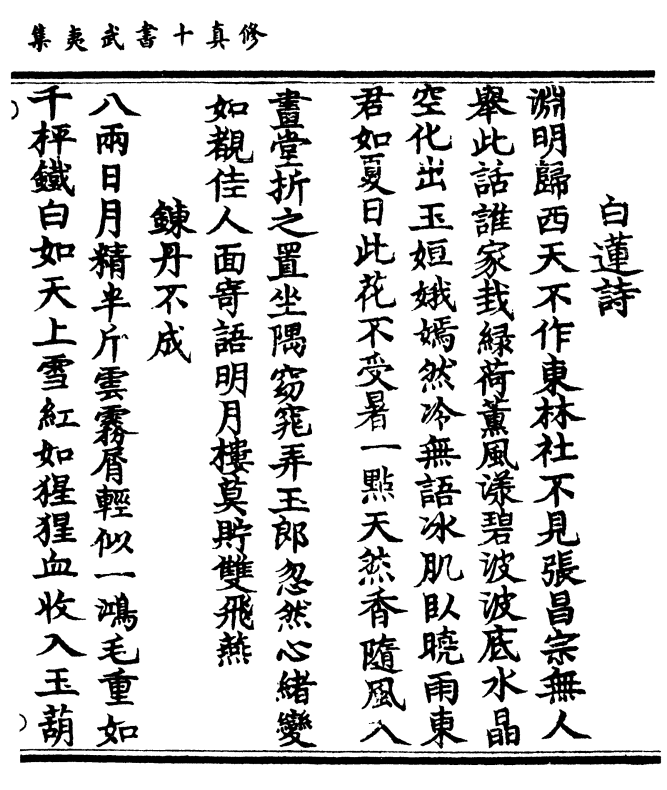 修真十書武夷集
白蓮詩
淵明歸西天不作東林社不見張昌宗無人
舉此話誰家栽綠荷薰風漾碧波波底水晶
空化出玉姮娥嫣然冷無語冰肌臥曉雨東
君如夏日此花不受暑一點天然香隨風入
畫堂折之置坐隅窈窕弄玉郎忽然心緒變
如覩佳人面寄語明月樓莫貯雙飛燕
鍊丹不成
八兩日月精半斤雲霧屑輕似一鴻毛重如
千枰鐵白如天上雪紅如猩猩血收入玉葫